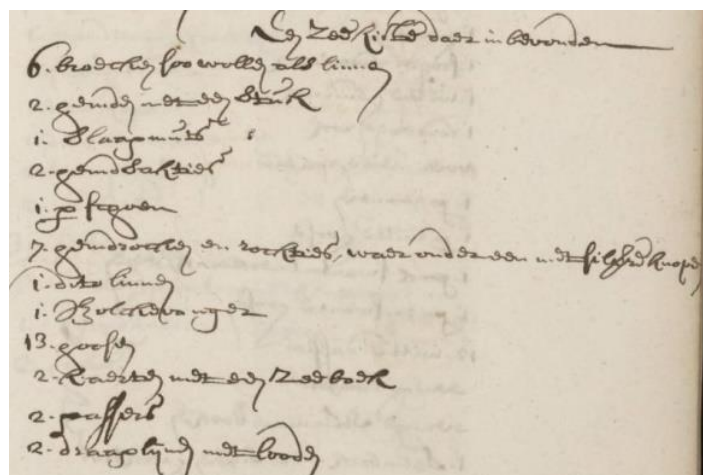 Een Zee kiste daer in bevonden
6. broecken soo wollen als linnen
2. hemden met een stuk
1. Slaapmuts
2. hemdtrockties
1. pr schoen
7. hemdrocken en rockties, waer onder een met silvere knopen
1. dito linnen
1. Bolckevanger
13. hosen
2. Kaerten met een Zeeboek
2. passers
2. draaglijnen met looden